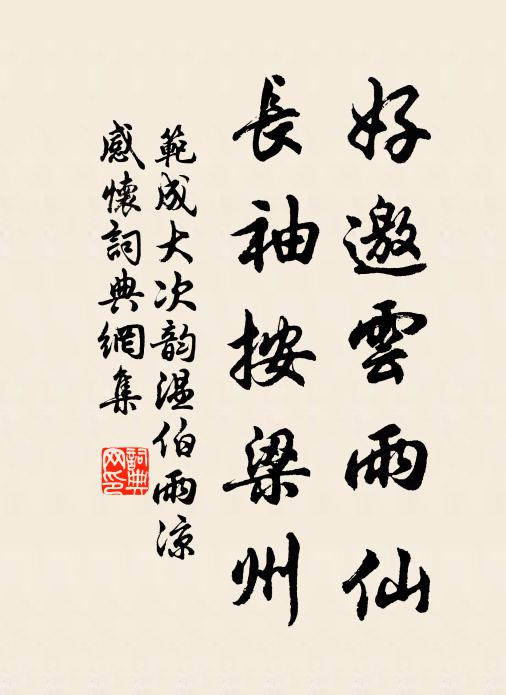 好邀雲雨仙
長袖按梁州
範成大次韵温伯雨凉
感懷詞典網集
詞典網印